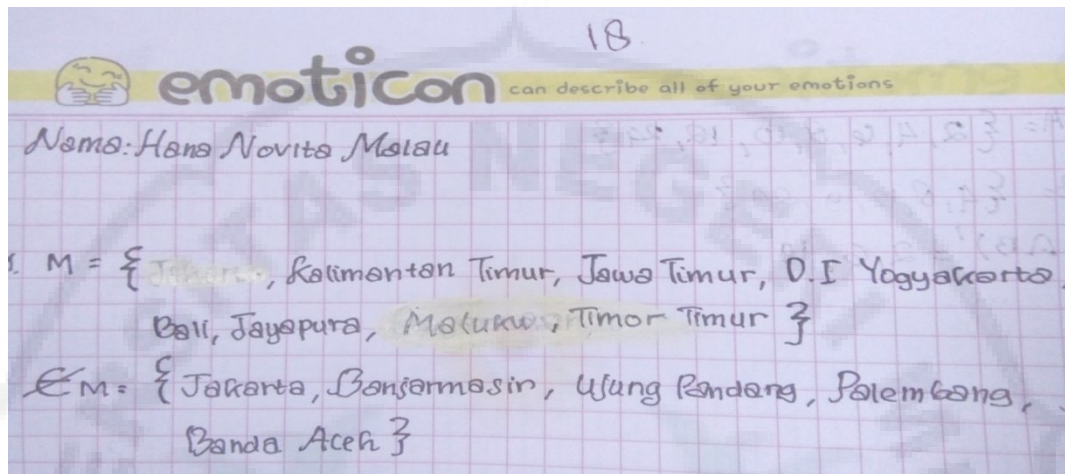 18.
emoticon can describe all of your emotions
Nama: Hana Novita Malau
1. M = { , Kalimantan Timur, Jawa Timur, D.I Yogyakarta,
Bali, Jayapura, Maluku, Timor Timur }
∉ M = { Jakarta, Banjarmasin, Ujung Pandang, Palembang,
Banda Aceh }